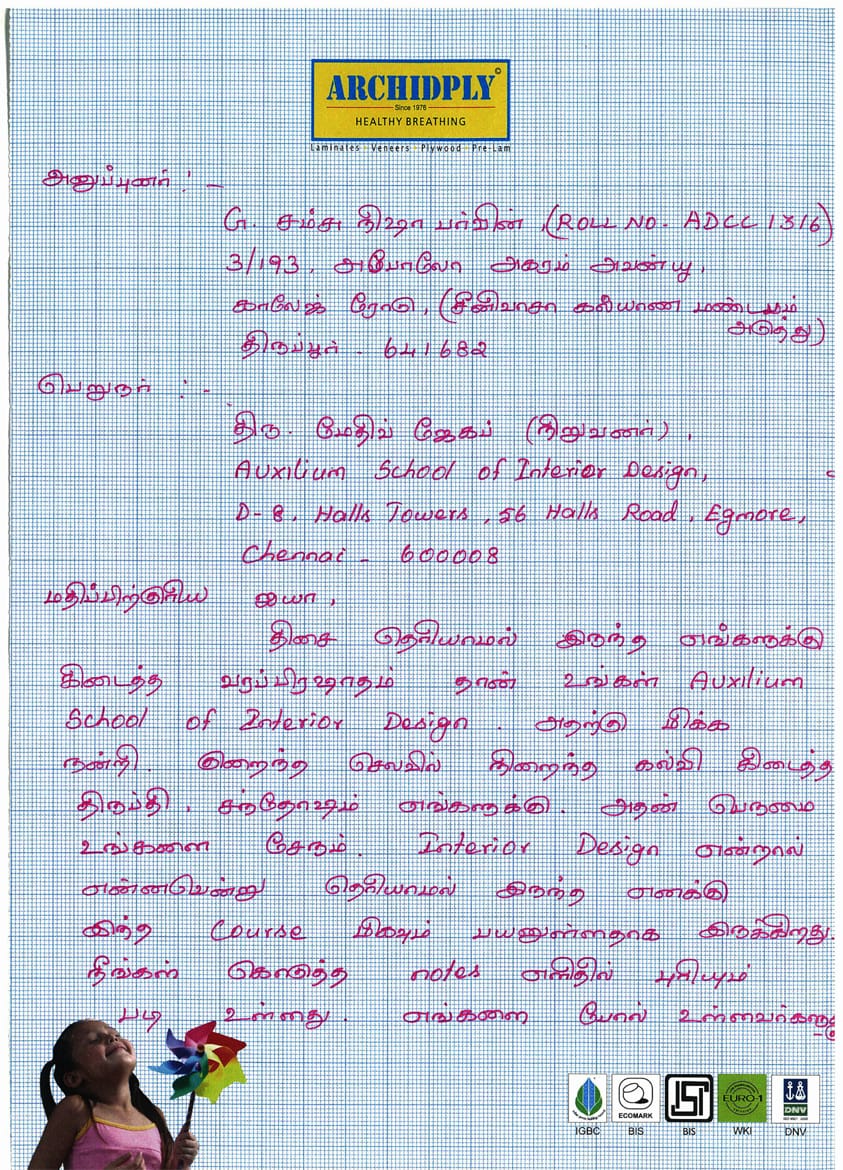 ARCHIDPLY©
Since 1976
HEALTHY BREATHING
Laminates Veneers Plywood Pre-Lam
அனுப்புனர் : -
G. சம்சு நிஷா பர்வின், (ROLL NO - ADCC 1316)
3/193, அபோலோ அகரம் அவன்யூ,
காலேஜ் ரோடு, (சீனிவாசா கல்யாண மண்டபம்
அடுத்து)
திருப்பூர் - 641682
பெறுநர் : -
திரு. மேதிவ் ஜேகப் (நிறுவனர்),
Auxilium School of Interior Design,
D-8, Halls Towers, 56 Halls Road, Egmore,
Chennai - 600008
மதிப்பிற்குரிய ஐயா,
திசை தெரியாமல் இருந்த எங்களுக்கு
கிடைத்த வரப்பிரஷாதம் தான் உங்கள் Auxilium
School of Interior Design. அதற்கு மிக்க
நன்றி. குறைந்த செலவில் நிறைந்த கல்வி கிடைத்த
திருப்தி, சந்தோஷம் எங்களுக்கு. அதன் பெருமை
உங்களை சேரும். Interior Design என்றால்
என்னவென்று தெரியாமல் இருந்த எனக்கு
இந்த Course மிகவும் பயனுள்ளதாக இருக்கிறது.
நீங்கள் கொடுத்த notes எளிதில் புரியும்
படி உள்ளது. எங்களை போல் உள்ளவர்களுக்கு
IGBC
ECOMARK
BIS
BIS
EURO-1
WKI
DNV
DNV